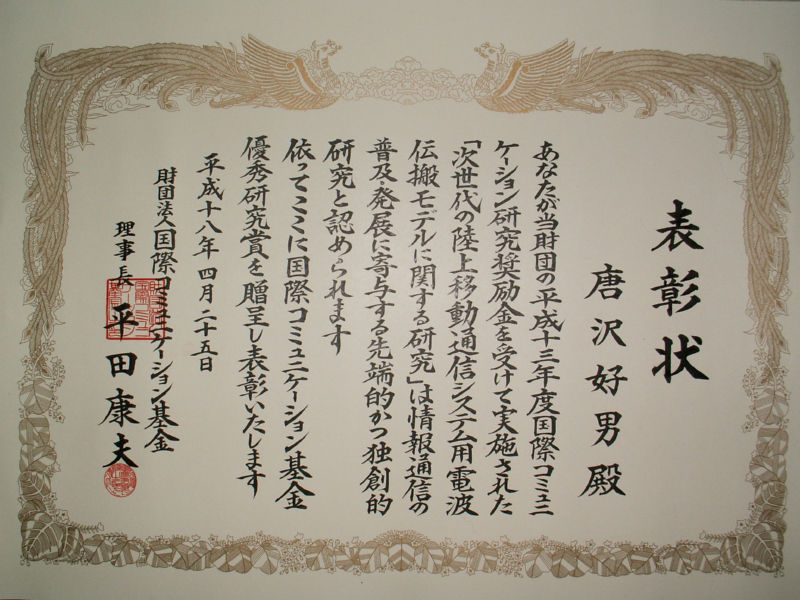 表彰状
唐沢好男殿
あなたが当財団の平成十三年度国際コミュニ
ケーション研究奨励金を受けて実施された
「次世代の陸上移動通信システム用電波
伝搬モデルに関する研究」は情報通信の
普及・発展に寄与する先端的かつ独創的
研究と認められます
依ってここに国際コミュニケーション基金
優秀研究賞を贈呈し表彰いたします
平成十八年四月二十五日
財団法人国際コミュニケーション基金
理事長 平田康夫